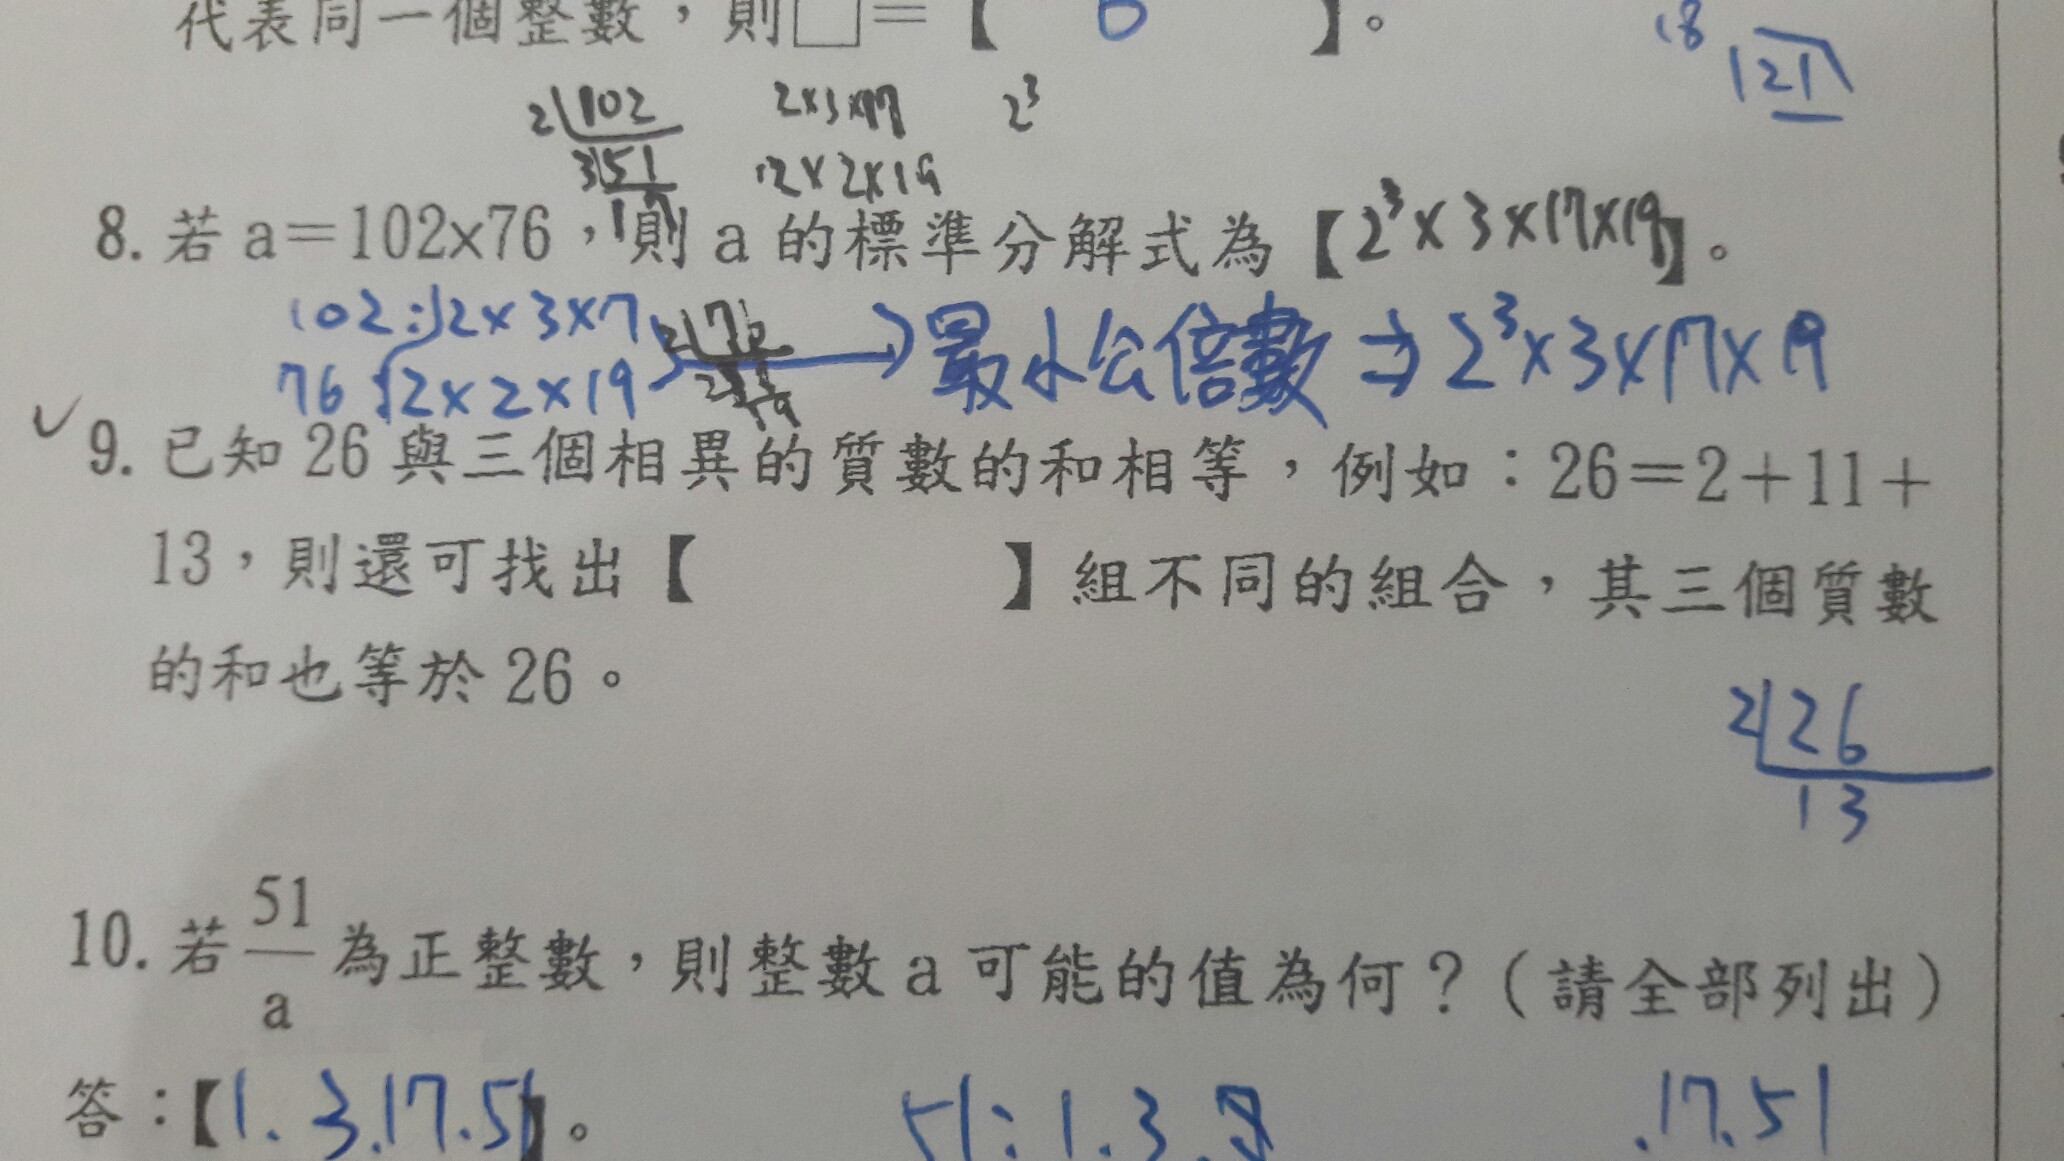 代表同一個整數，則□＝【 6 】。
18
121
2 102 2×3×17 2³
3 51 2×2×19
17
8. 若 a＝102×76，則 a 的標準分解式為【2³×3×17×19】。
102 : 2×3×7
76 2×2×19
2 76
2
19
→ 最小公倍數 ⇒ 2³×3×17×19
✓9. 已知 26 與三個相異的質數的和相等，例如：26＝2＋11＋
13，則還可找出【 】組不同的組合，其三個質數
的和也等於 26。
2 26
13
10. 若 51/a 為正整數，則整數 a 可能的值為何？（請全部列出）
答：【1.3.17.51】。 51:1.3. .17.51